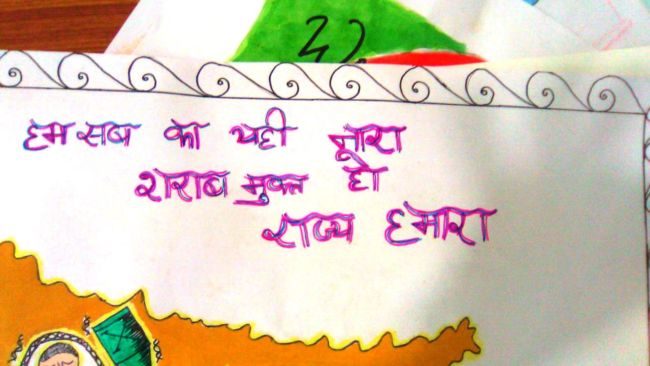 हम सब का यही नारा
शराब मुक्त हो
राज्य हमारा